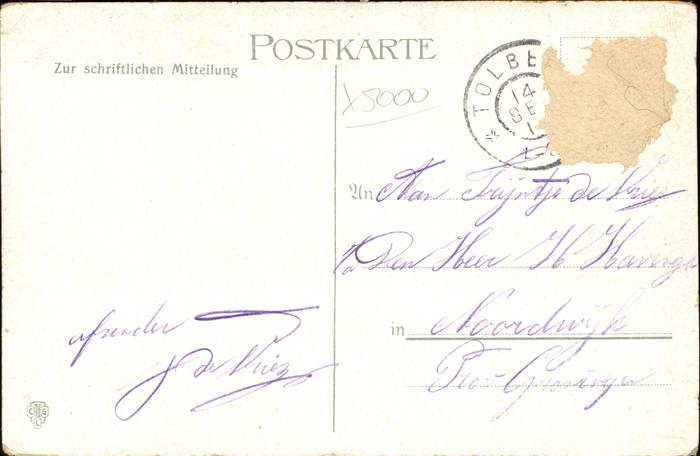 POSTKARTE
Zur schriftlichen Mitteilung
x5000
TOLBE
14
SE
1
An Aan Trijntje de Vries
p/a Den Heer H Havinga
in Noordwijk
Prov Groningen
afzender
J de Vries
C G L